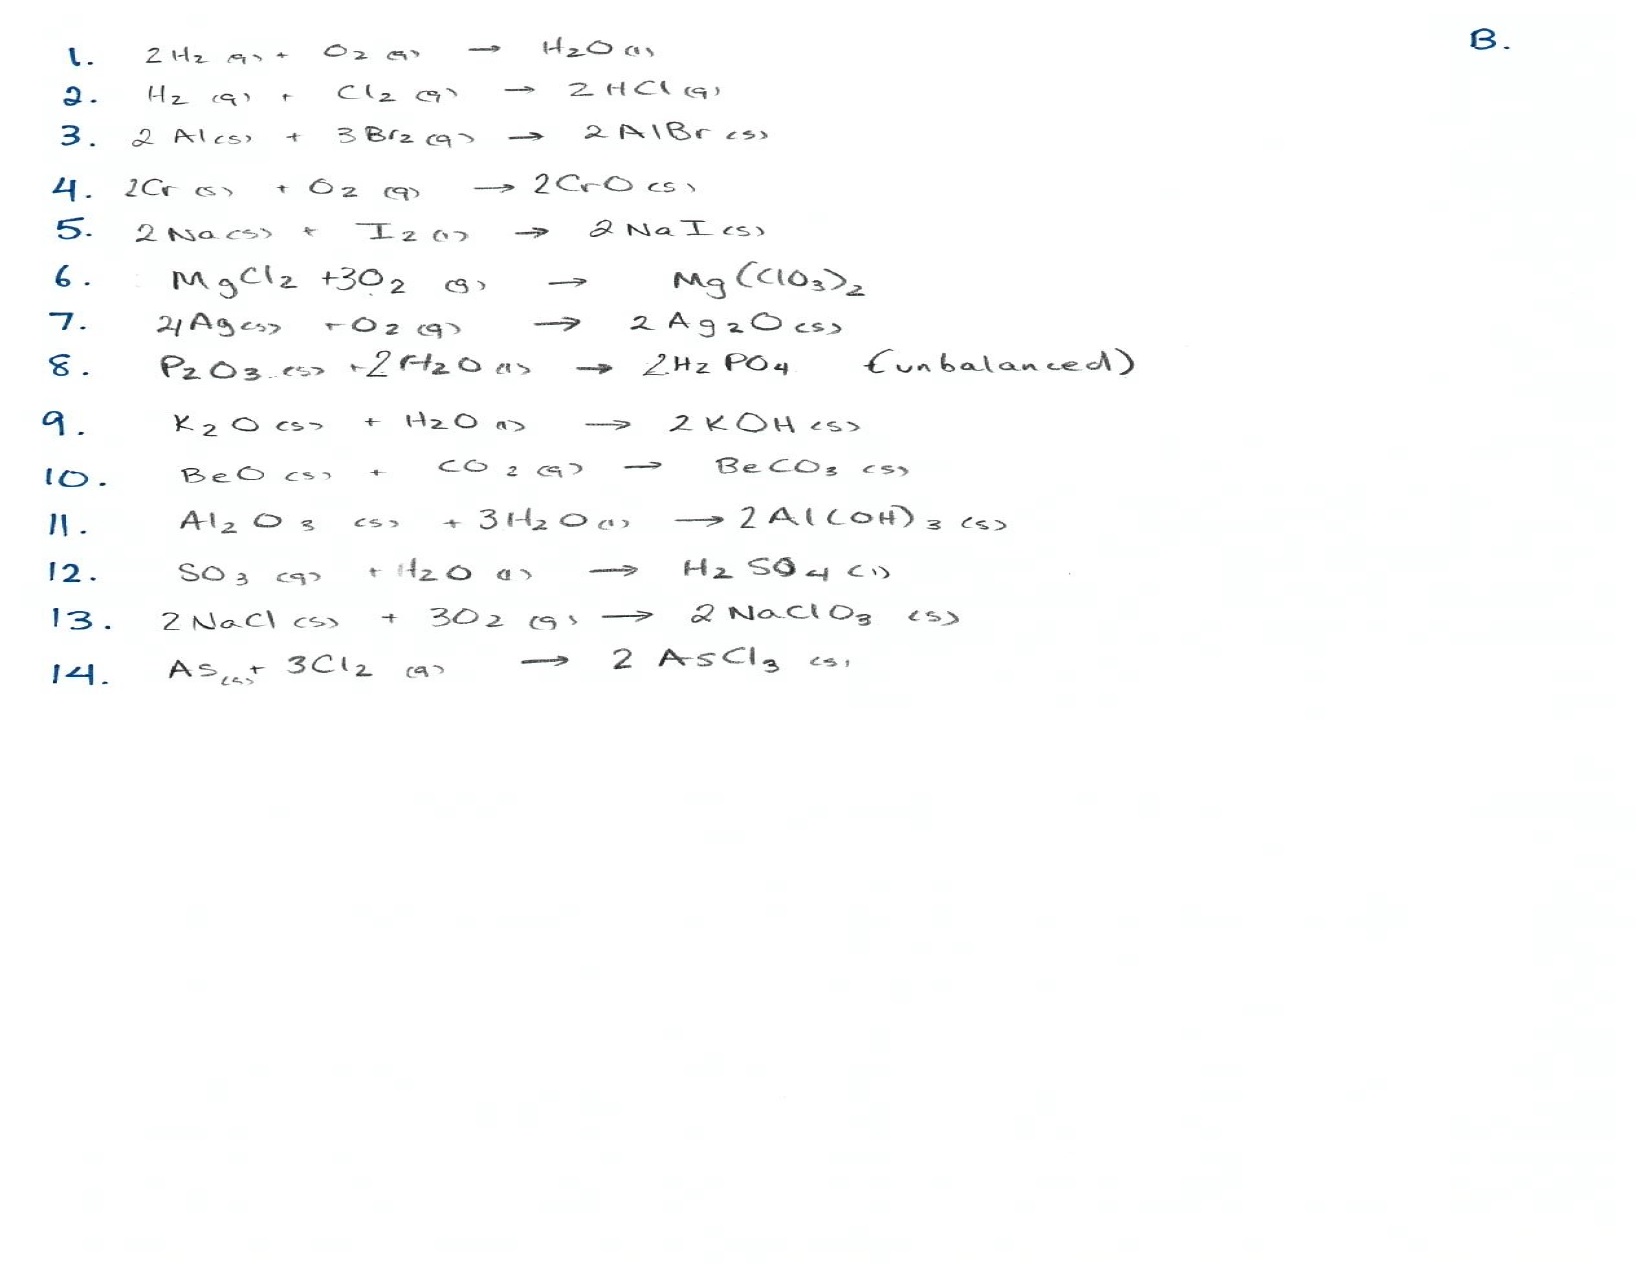 B.
1. 2H2 (g) + O2 (g) → H2O (l)
2. H2 (g) + Cl2 (g) → 2HCl (g)
3. 2 Al (s) + 3Br2 (g) → 2AlBr (s)
4. 2Cr (s) + O2 (g) → 2CrO (s)
5. 2Na (s) + I2 (l) → 2NaI (s)
6. MgCl2 +3O2 (g) → Mg(ClO3)2
7. 4Ag (s) + O2 (g) → 2Ag2O (s)
8. P2O3 (s) + 2H2O (l) → 2H2PO4 (unbalanced)
9. K2O (s) + H2O (l) → 2KOH (s)
10. BeO (s) + CO2 (g) → BeCO3 (s)
11. Al2O3 (s) + 3H2O (l) → 2Al(OH)3 (s)
12. SO3 (g) + H2O (l) → H2SO4 (l)
13. 2NaCl (s) + 3O2 (g) → 2NaClO3 (s)
14. As (s) + 3Cl2 (g) → 2 AsCl3 (s)